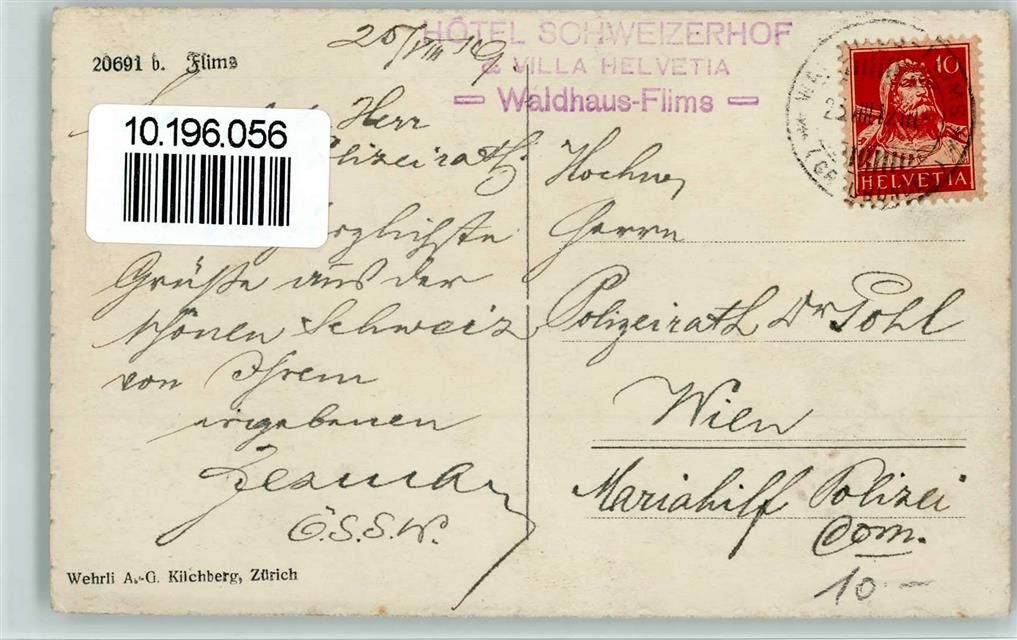 20691 b. Flims
25/VIII 19.
HÔTEL SCHWEIZERHOF
& VILLA HELVETIA
Waldhaus-Flims
10
HELVETIA
10.196.056
Herr
Polizeirath
herzlichste
Grüße aus der
schönen Schweiz
von Ihrem
ergebenen
Ö.S.S.W.
Hochw.
Herrn
Polizeirath Dr Pohl
Wien
Mariahilf Polizei
Com.
10.—
Wehrli A.-G. Kilchberg, Zürich